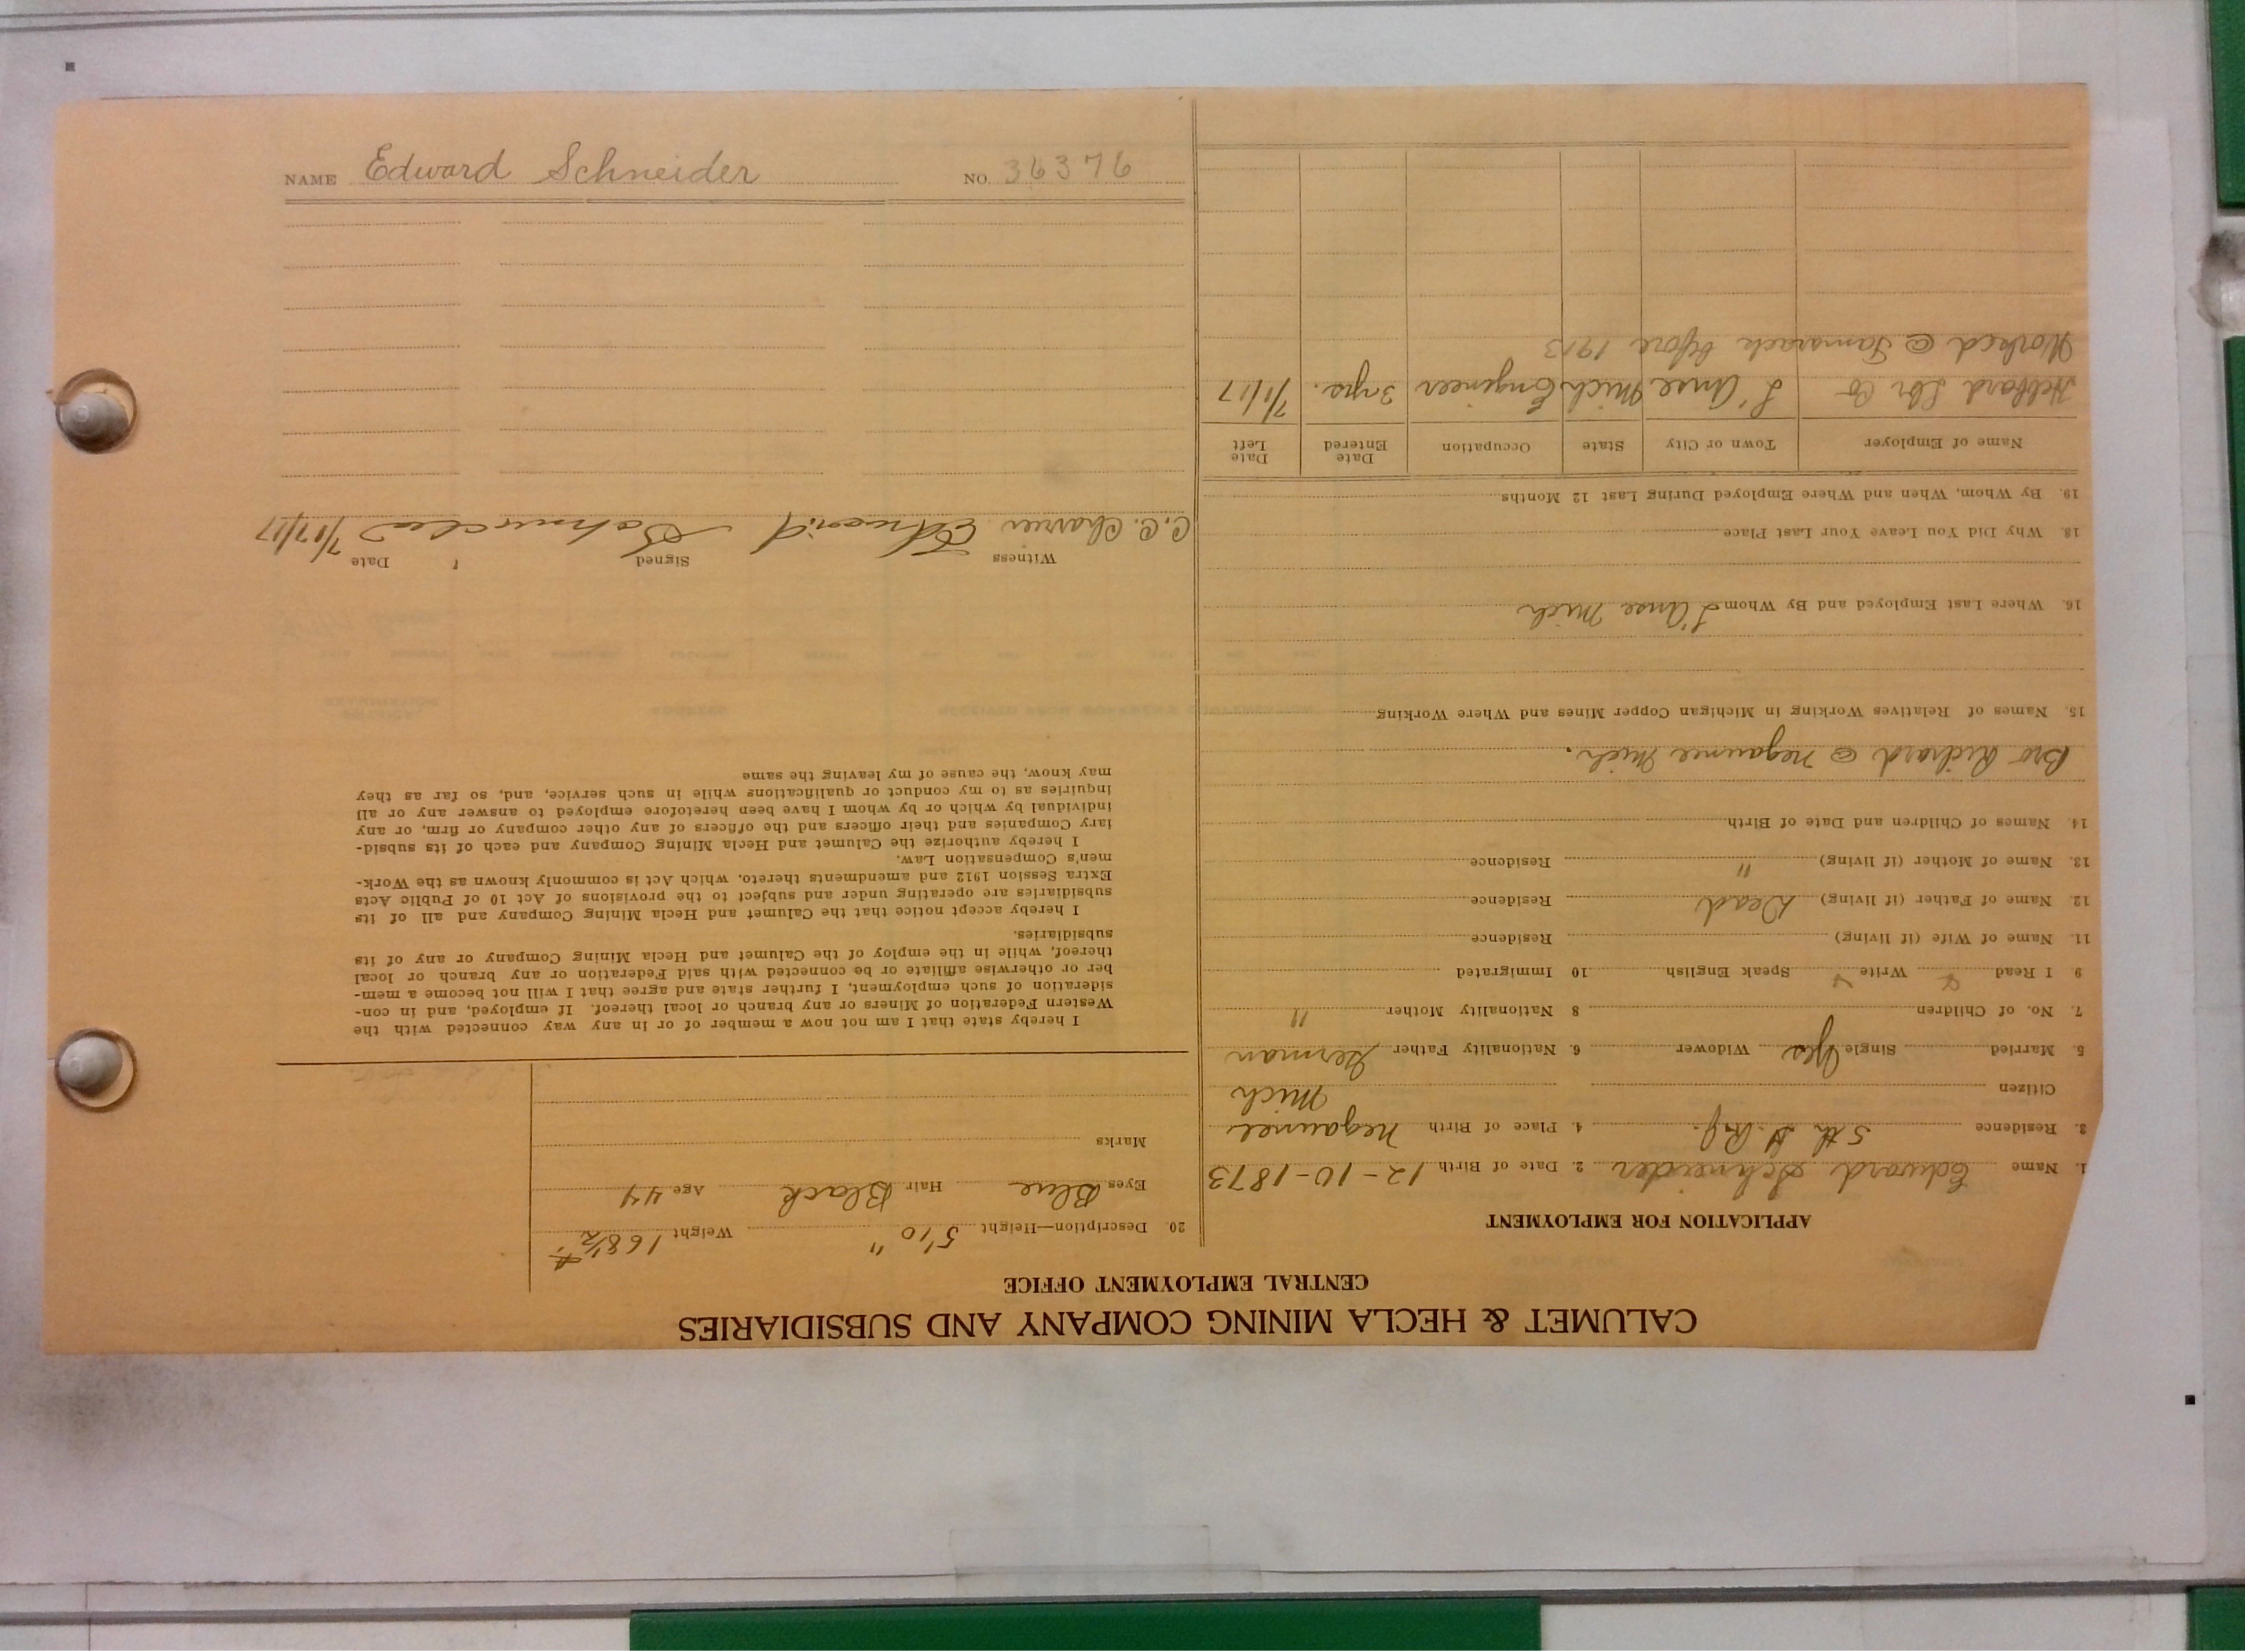 CALUMET & HECLA MINING COMPANY AND SUBSIDIARIES
CENTRAL EMPLOYMENT OFFICE
APPLICATION FOR EMPLOYMENT
1. Name Edward Schneider 2. Date of Birth 12-10-1873
3. Residence 5th St 4. Place of Birth Negaunee
Citizen Mich
5. Married Single Yes Widower 6. Nationality Father German
7. No. of Children 8 Nationality Mother "
9 I Read Write Speak English 10 Immigrated
11. Name of Wife (if living) Residence
12. Name of Father (if living) Dead Residence
13. Name of Mother (if living) " Residence
14. Names of Children and Date of Birth
Bro Richard @ Negaunee Mich.
15. Names of Relatives Working in Michigan Copper Mines and Where Working
16. Where Last Employed and By Whom L'Anse Mich
18. Why Did You Leave Your Last Place
19. By Whom, When and Where Employed During Last 12 Months
Name of Employer Town or City State Occupation Date Entered Date Left
Hebbard Lbr Co L'Anse Mich Engineer 3 yrs. 7/1/17
Worked @ Tamarack before 1913
20. Description—Height 5'10" Weight 168½
Eyes Blue Hair Black Age 44
Marks
I hereby state that I am not now a member of or in any way connected with the
Western Federation of Miners or any branch or local thereof. If employed, and in con-
sideration of such employment, I further state and agree that I will not become a mem-
ber or otherwise affiliate or be connected with said Federation or any branch or local
thereof, while in the employ of the Calumet and Hecla Mining Company or any of its
subsidiaries.
I hereby accept notice that the Calumet and Hecla Mining Company and all of its
subsidiaries are operating under and subject to the provisions of Act 10 of Public Acts
Extra Session 1912 and amendments thereto, which Act is commonly known as the Work-
men's Compensation Law.
I hereby authorize the Calumet and Hecla Mining Company and each of its subsid-
iary Companies and their officers and the officers of any other company or firm, or any
individual by which or by whom I have been heretofore employed to answer any or all
inquiries as to my conduct or qualifications while in such service, and, so far as they
may know, the cause of my leaving the same
Witness Signed Date
C. C. 7/17/17
NAME Edward Schneider NO. 36376